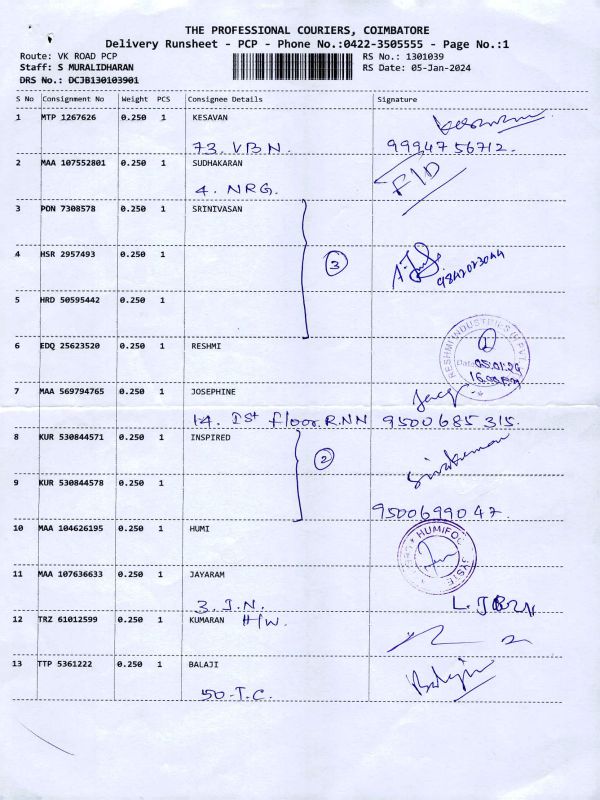 THE PROFESSIONAL COURIERS, COIMBATORE
Delivery Runsheet - PCP - Phone No.:0422-3505555 - Page No.:1
Route: VK ROAD PCP
RS No.: 1301039
Staff: S MURALIDHARAN
RS Date: 05-Jan-2024
DRS No.: DCJB130103901
S No Consignment No Weight PCS Consignee Details Signature
1 MTP 1267626 0.250 1 KESAVAN
73. V.B.N. 9994756712.
2 MAA 107552801 0.250 1 SUDHAKARAN
4. NRG. F/D
3 PON 7308578 0.250 1 SRINIVASAN
4 HSR 2957493 0.250 1 3
9842023044
5 HRD 50595442 0.250 1
6 EDQ 25623520 0.250 1 RESHMI
RESHMI INDUSTRIES
1
Date 05.01.24
7 MAA 569794765 0.250 1 JOSEPHINE
14. Ist floor. R.NN 9500685315.
8 KUR 530844571 0.250 1 INSPIRED
2 Sivakumar
9 KUR 530844578 0.250 1
9500699047.
10 MAA 104626195 0.250 1 HUMI
HUMIFOG SYSTE
11 MAA 107636633 0.250 1 JAYARAM
3. J.N.
12 TRZ 61012599 0.250 1 KUMARAN H/W.
13 TTP 5361222 0.250 1 BALAJI
Balaji
50-T.C.